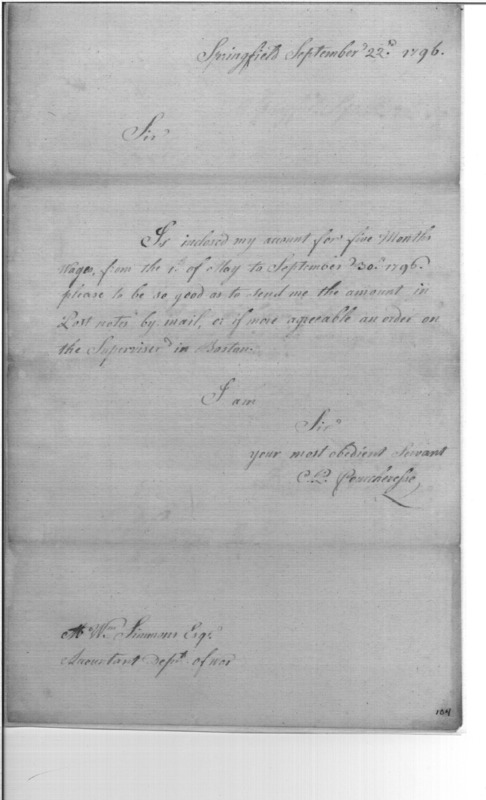 Springfield September 22d 1796.
Sir
Is inclosed my account for five Months
Wages, from the 1st of May to September 30th 1796.
please to be so good as to send me the amount in
Post notes by mail, or if more agreeable an order on
the Superviser in Boston.
I am
Sir
your most obedient Servant
Mr Wm Simmons Esqr
Accountant Dept of war
104